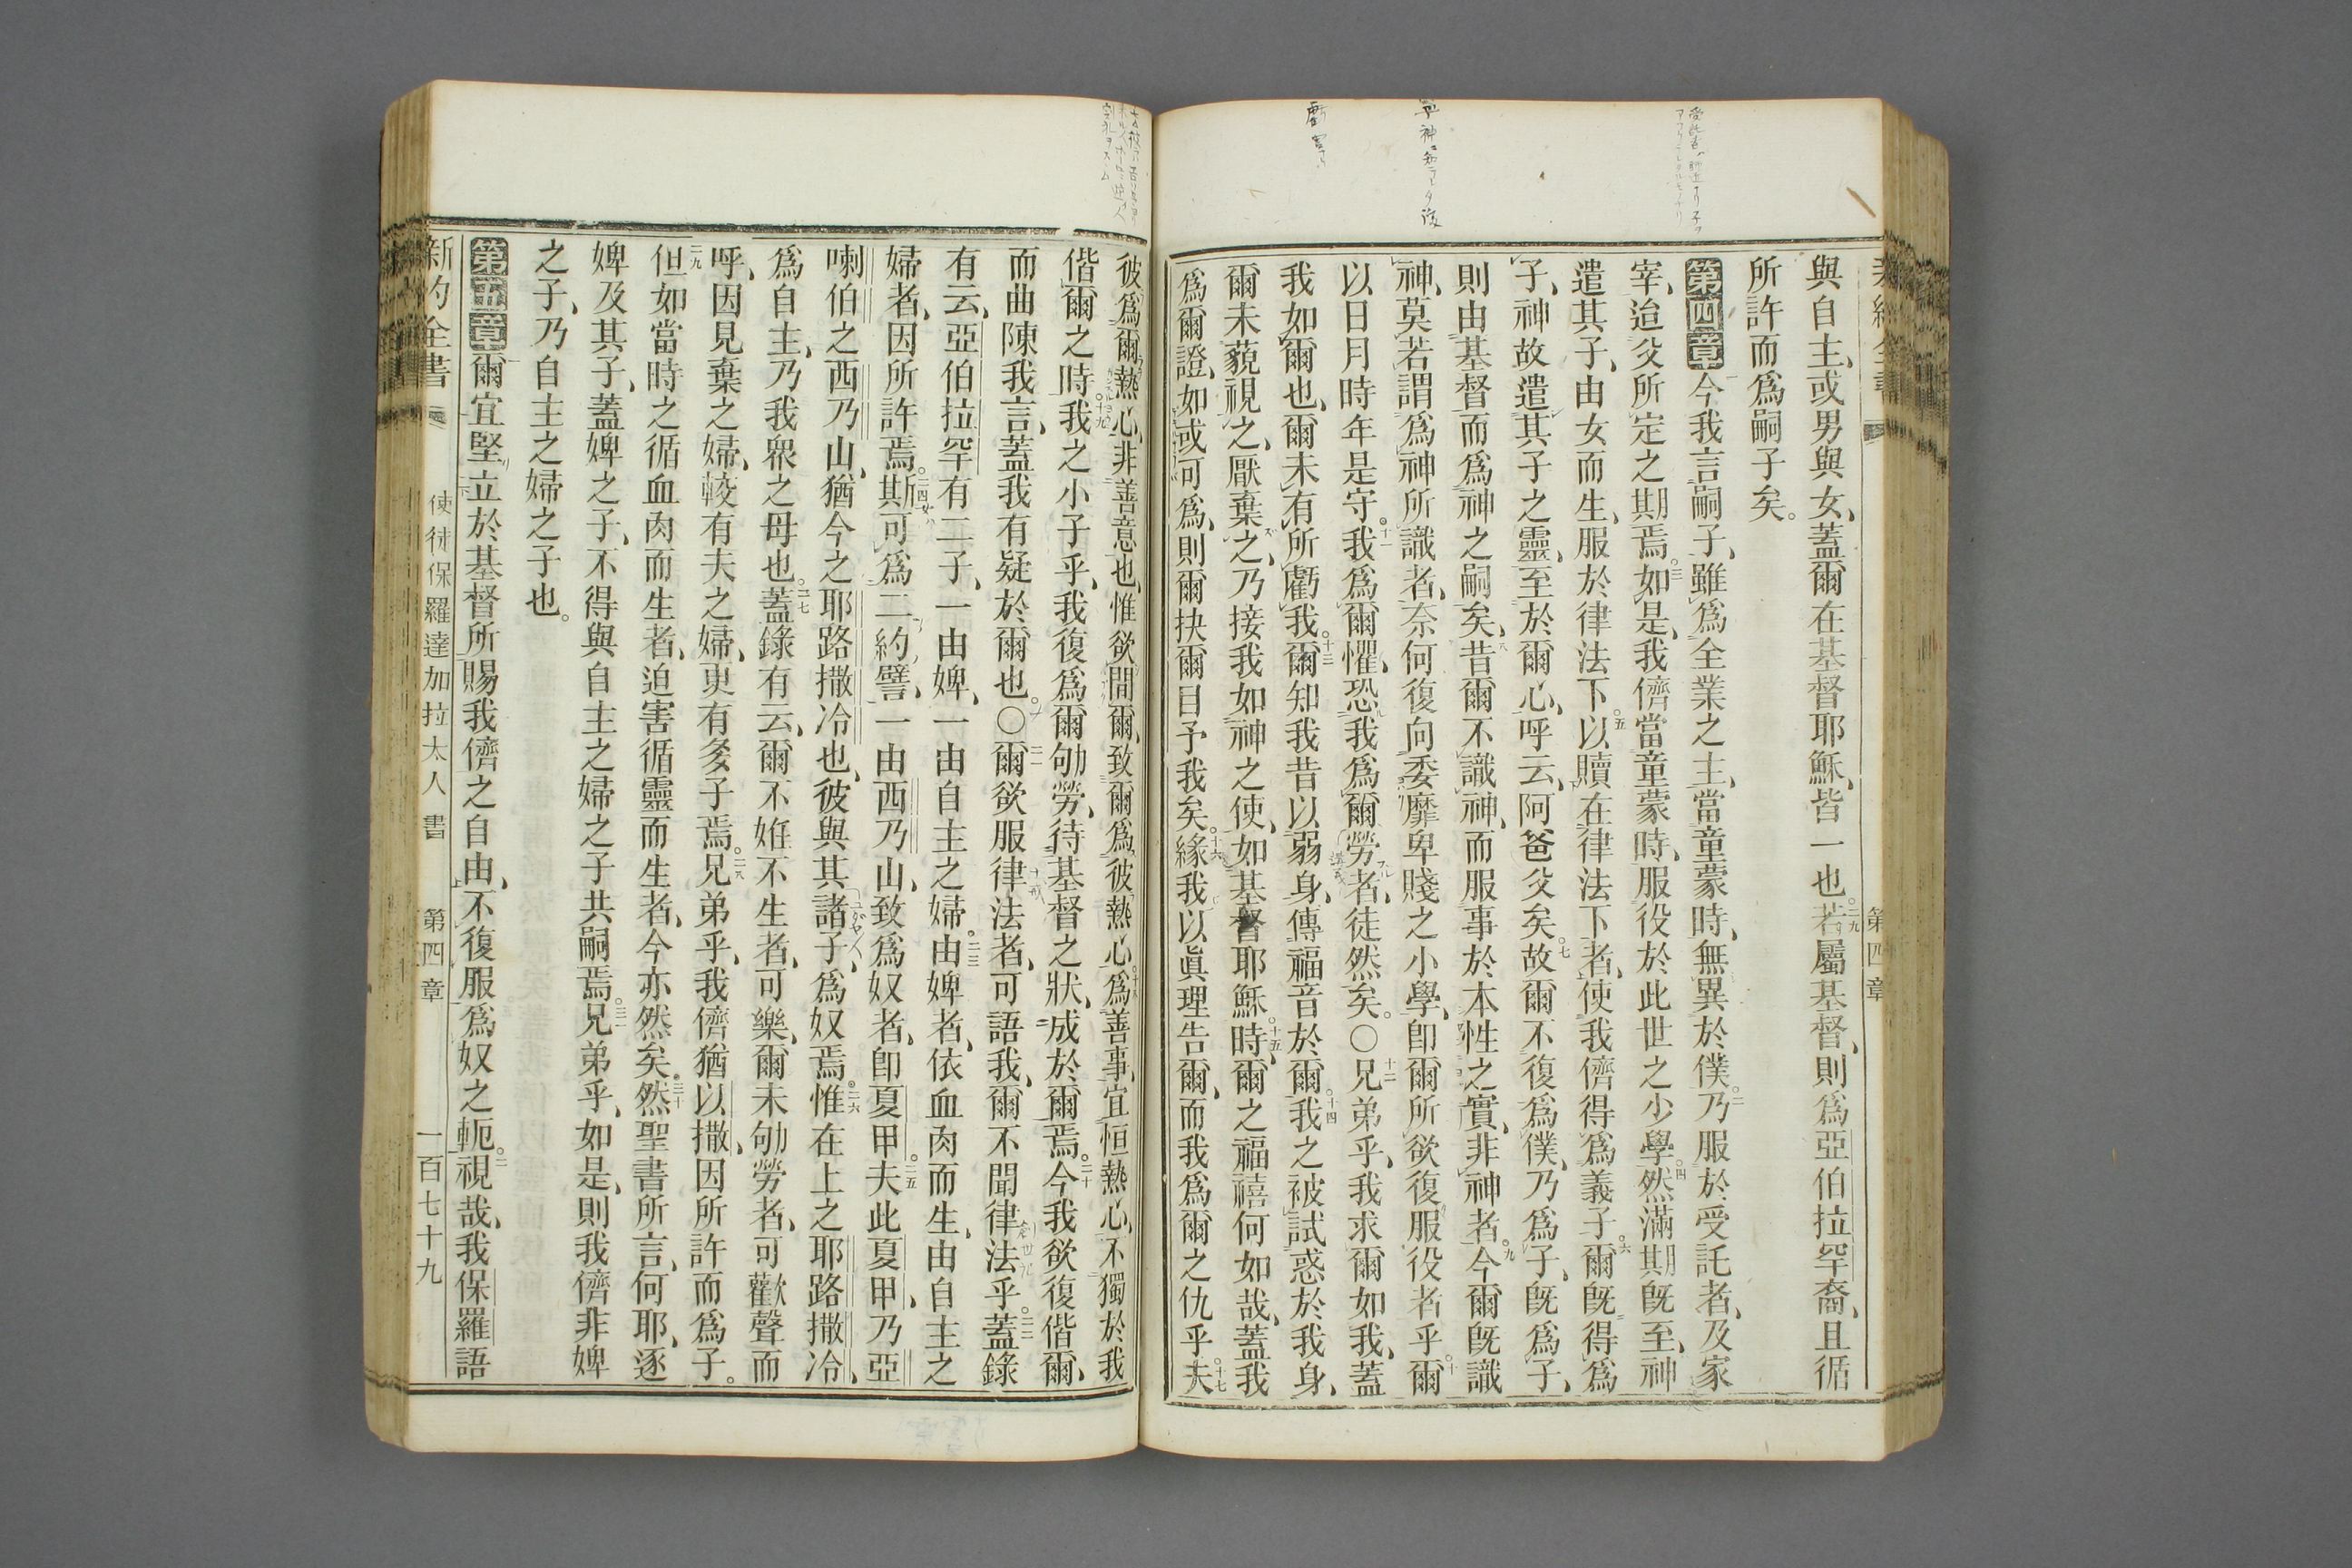 第四章
與自主、或男與女、蓋爾在基督耶穌、皆一也。二九若屬基督、則爲亞伯拉罕裔、且循
所許而爲嗣子矣。
第四章一今我言嗣子、雖爲全業之主、當童蒙時、無異於僕。二乃服於受託者、及家
宰、迨父所定之期焉。三如是、我儕當童蒙時、服役於此世之少學。四然滿期旣至、神
遣其子、由女而生、服於律法下。五以贖在律法下者、使我儕得爲義子。六爾旣得爲
子、神故遣其子之靈、至於爾心、呼云、阿爸父矣。七故爾不復爲僕、乃爲子、旣爲子、
則由基督而爲神之嗣矣。八昔爾不識神、而服事於本性之實、非神者。九今爾旣識
神、莫若謂爲神所識者、奈何復向委靡卑賤之小學、卽爾所欲復服役者乎。十爾
以日月時年是守。十一我爲爾懼、恐我爲爾勞者、徒然矣。〇十二兄弟乎、我求爾如我、蓋
我如爾也、爾未有所虧我。十三爾知我昔以弱身、傳福音於爾。十四我之被試惑於我身、
爾未藐視之、厭棄之、乃接我如神之使、如基督耶穌。十五時、爾之福禧何如哉、蓋我
爲爾證、如或可爲、則爾抉爾目予我矣。十六緣我以眞理告爾、而我爲爾之仇乎。十七夫
彼爲爾熱心、非善意也、惟欲間爾、致爾爲彼熱心。十八爲善事、宜恒熱心、不獨於我
偕爾之時。十九我之小子乎、我復爲爾劬勞、待基督之狀、成於爾焉。二十今我欲復偕爾、
而曲陳我言、蓋我有疑於爾也。〇二一爾欲服律法者、可語我、爾不聞律法乎。二二蓋錄
有云、亞伯拉罕有二子、一由婢、一由自主之婦。二三由婢者、依血肉而生、由自主之
婦者、因所許焉。二四斯可爲二約譬、一由西乃山、致爲奴者、卽夏甲。二五夫此夏甲、乃亞
喇伯之西乃山、猶今之耶路撒冷也、彼與其諸子、爲奴焉。二六惟在上之耶路撒冷、
爲自主、乃我衆之母也。二七蓋錄有云、爾不姙不生者、可樂、爾未劬勞者、可歡聲而
呼、因見棄之婦、較有夫之婦、更有多子焉。二八兄弟乎、我儕猶以撒、因所許而爲子。
二九但如當時之循血肉而生者、迫害循靈而生者、今亦然矣。三十然聖書所言、何耶、逐
婢及其子、蓋婢之子、不得與自主之婦之子共嗣焉。三一兄弟乎、如是、則我儕非婢
之子、乃自主之婦之子也。
第五章一爾宜堅立於基督所賜我儕之自由、不復服爲奴之軛。二視哉、我保羅語
新約全書 使徒保羅達加拉太人書 第四章 一百七十九